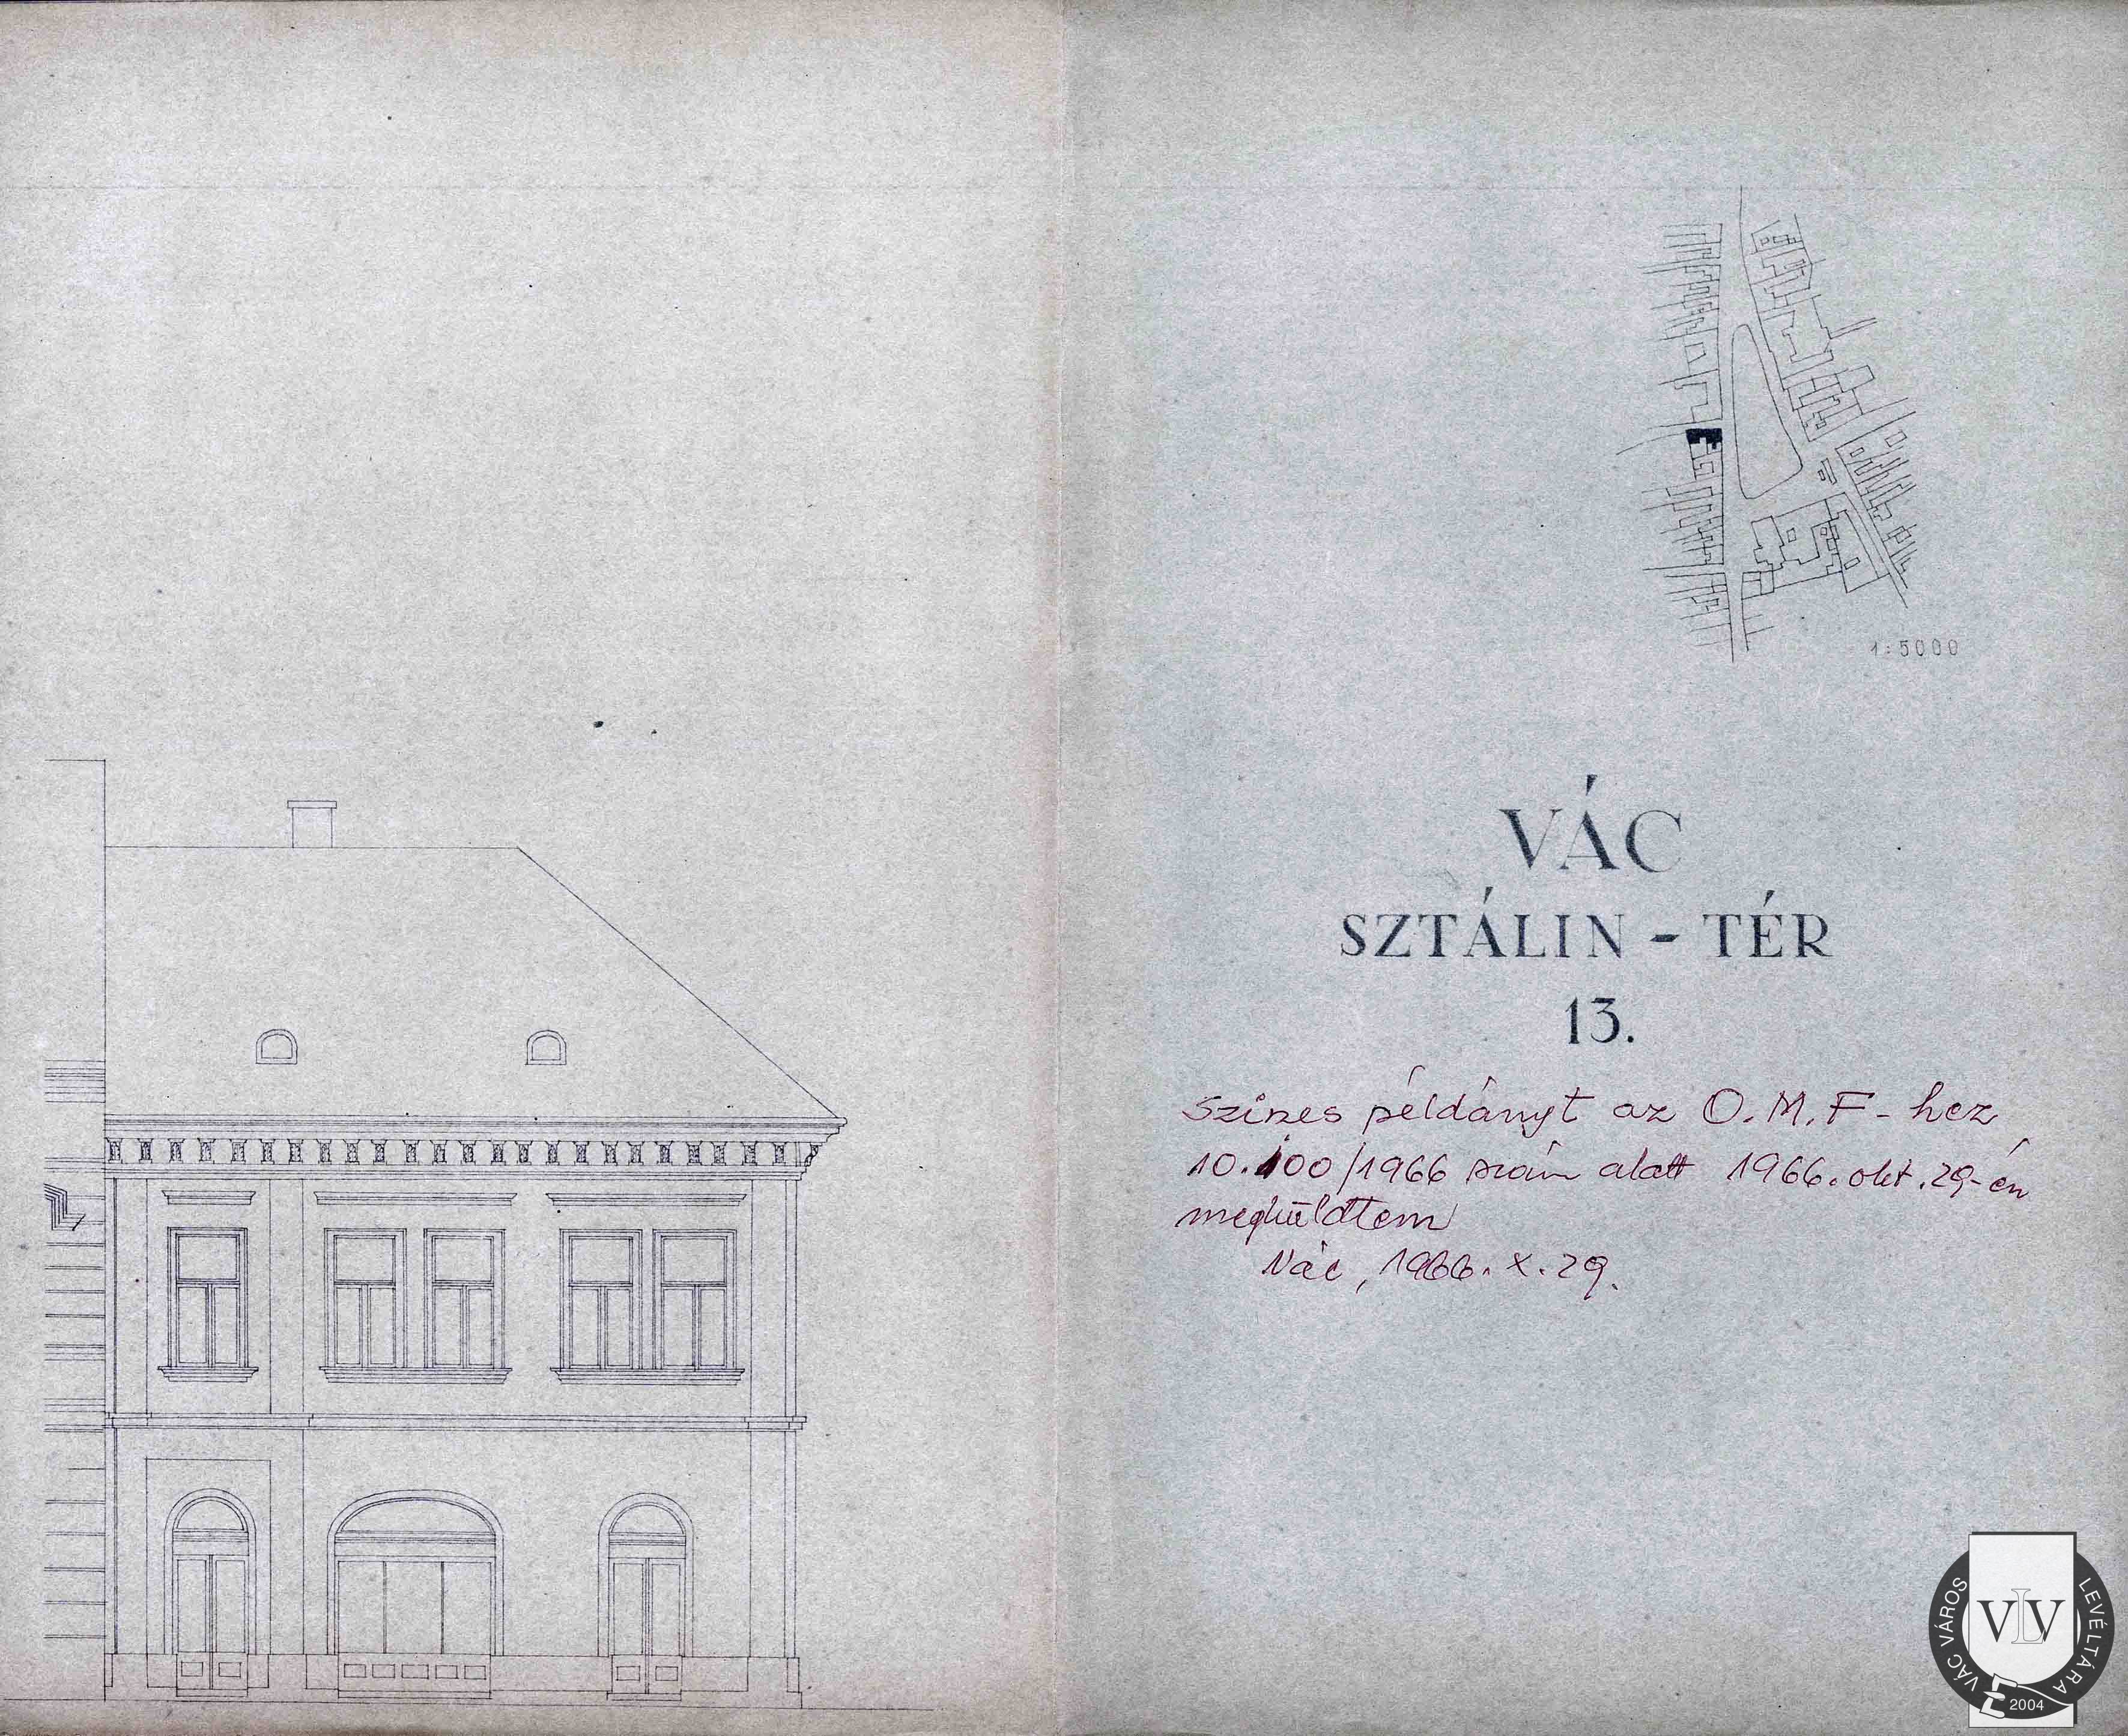 1:5000
VÁC
SZTÁLIN - TÉR
13.
Szines példányt az O.M.F-hez
10.100/1966 szám alatt 1966. okt. 29-én
megküldtem
Vác, 1966. X. 29.
VÁC VÁROS LEVÉLTÁRA
VLV
2004